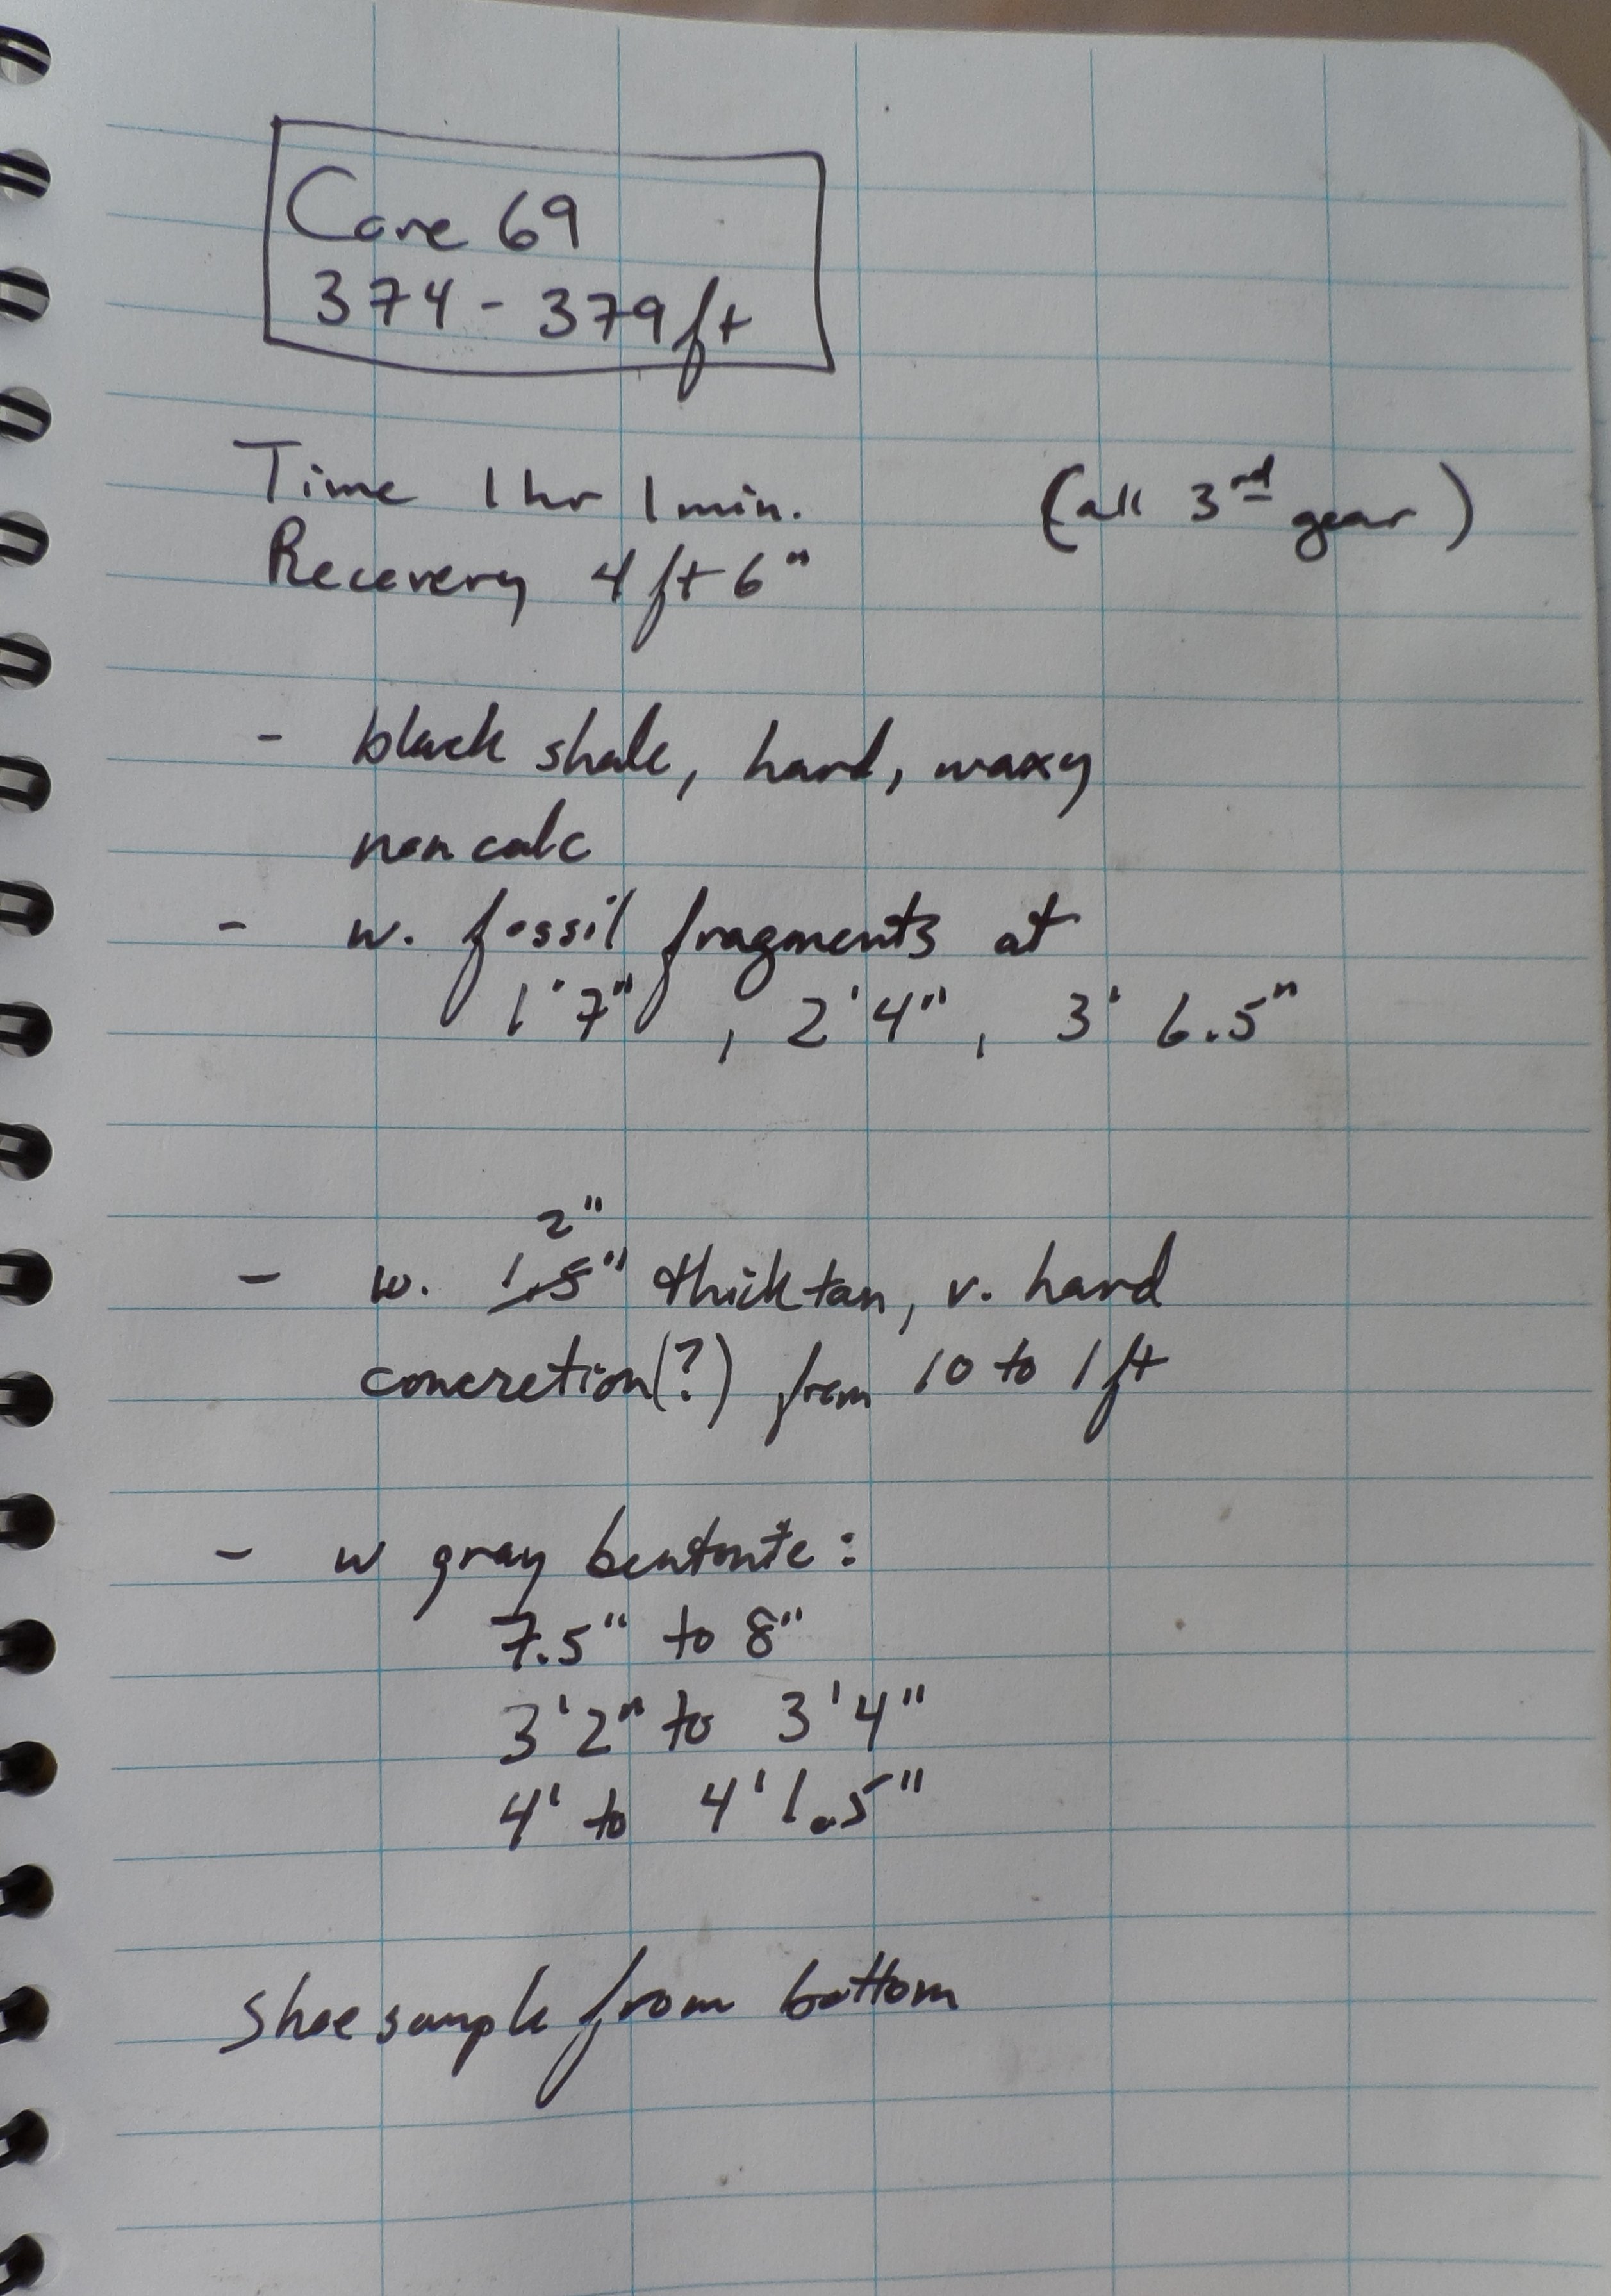 Core 69
374 - 379 ft
Time 1 hr 1 min. (all 3rd gear)
Recovery 4 ft 6"
- black shale, hard, waxy
non calc
- w. fossil fragments at
1' 7" , 2' 4" , 3' 6.5"
2"
- w. 1.5" thick tan, v. hard
concretion(?) from 10 to 1 ft
- w gray bentonite:
7.5" to 8"
3' 2" to 3' 4"
4' to 4' 1.5"
Shoe sample from bottom